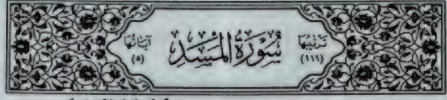 ترتيبها (١١١) سُورَةُ المَسَدِ آياتها (٥)